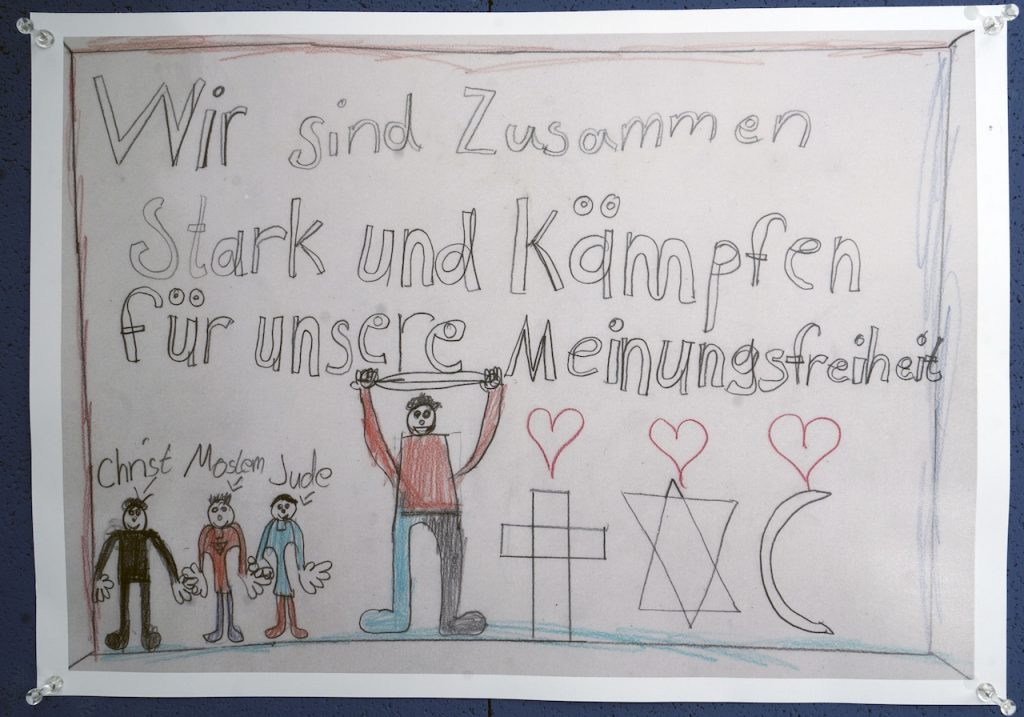 Wir sind Zusammen
Stark und Kämpfen
für unsere Meinungsfreiheit
Christ Moslem Jude